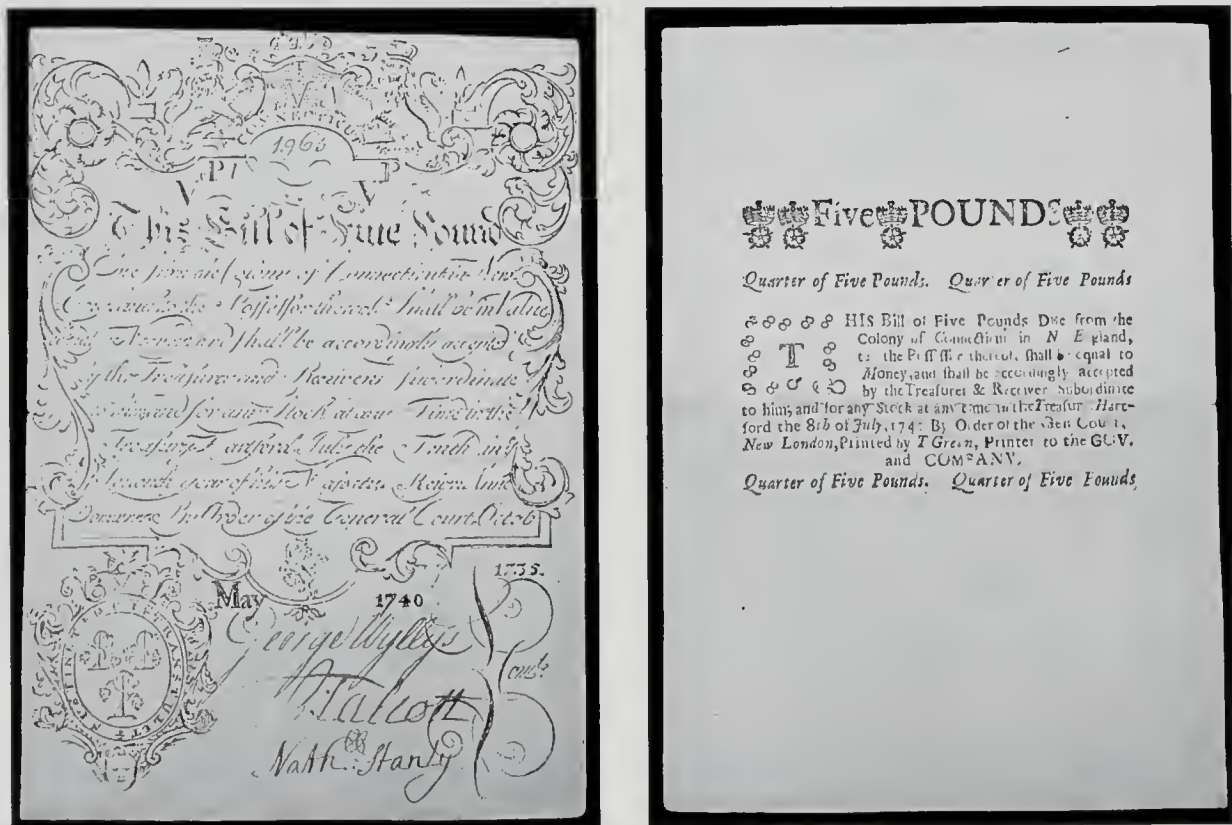 CONNECTICUT
1960
V P
V
This Bill of Five Pound
due from the Colony of Connecticut in New
to the Possessor thereof Shall be in Value
and Shall be accordingly accepted
by the Treasurer and Receivers Subordinate
and for any Stock at any Time in the
Treasury Hartford July the Tenth in
year of his Majesties Reign
By Order of the General Court Octob
1735.
May 1740
SUSTINET QUI TRANSTULIT
George Wyllys
Comtte
Talcott
Nath: Stanly
Five POUNDS
Quarter of Five Pounds. Quarter of Five Pounds
THIS Bill of Five Pounds Due from the
Colony of Connecticut in N England,
to the Possessor thereof, shall be equal to
Money, and shall be accordingly accepted
by the Treasurer & Receiver Subordinate
to him, and for any Stock at any time in the Treasury Hart-
ford the 8th of July, 174 By Order of the Gen Court,
New London, Printed by T Green, Printer to the GOV.
and COMPANY.
Quarter of Five Pounds. Quarter of Five Pounds